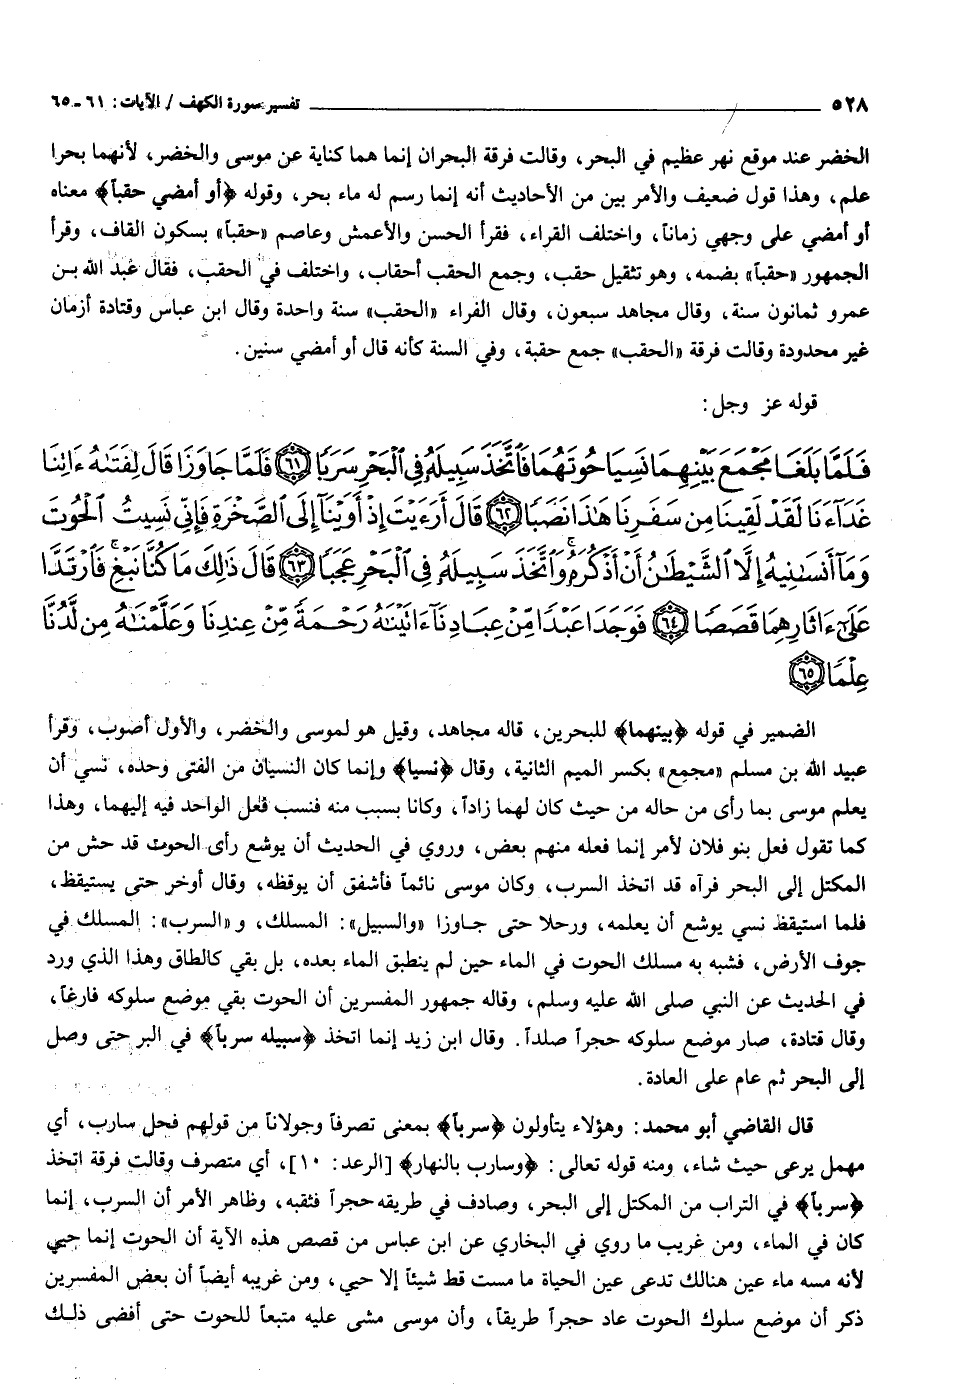 ٥٢٨ تفسير سورة الكهف / الآيات: ٦١ - ٦٥
الخضر عند موقع نهر عظيم في البحر، وقالت فرقة البحران إنما هما كناية عن موسى والخضر، لأنهما بحرا
علم، وهذا قول ضعيف والأمر بين من الأحاديث أنه إنما رسم له ماء بحر، وقوله ﴿أو أمضي حقباً﴾ معناه
أو أمضي على وجهي زماناً، واختلف القراء، فقرأ الحسن والأعمش وعاصم «حقباً» بسكون القاف، وقرأ
الجمهور «حقباً» بضمه، وهو تثقيل حقب، وجمع الحقب أحقاب، واختلف في الحقب، فقال عبد الله بن
عمرو ثمانون سنة، وقال مجاهد سبعون، وقال الفراء «الحقب» سنة واحدة وقال ابن عباس وقتادة أزمان
غير محدودة وقالت فرقة «الحقب» جمع حقبة، وفي السنة كأنه قال أو أمضي سنين.
قوله عز وجل:
فَلَمَّا بَلَغَا مَجْمَعَ بَيْنِهِمَا نَسِيَا حُوتَهُمَا فَاتَّخَذَ سَبِيلَهُ فِي الْبَحْرِ سَرَبًا ﴿٦١﴾ فَلَمَّا جَاوَزَا قَالَ لِفَتَىٰهُ ءَاتِنَا
غَدَآءَنَا لَقَدْ لَقِينَا مِن سَفَرِنَا هَٰذَا نَصَبًا ﴿٦٢﴾ قَالَ أَرَءَيْتَ إِذْ أَوَيْنَآ إِلَى الصَّخْرَةِ فَإِنِّي نَسِيتُ الْحُوتَ
وَمَآ أَنسَانِيهُ إِلَّا الشَّيْطَٰنُ أَنْ أَذْكُرَهُۥ وَاتَّخَذَ سَبِيلَهُ فِي الْبَحْرِ عَجَبًا ﴿٦٣﴾ قَالَ ذَٰلِكَ مَا كُنَّا نَبْغِ فَارْتَدَّا
عَلَىٰٓ ءَاثَارِهِمَا قَصَصًا ﴿٦٤﴾ فَوَجَدَا عَبْدًا مِّنْ عِبَادِنَآ ءَاتَيْنَٰهُ رَحْمَةً مِّنْ عِندِنَا وَعَلَّمْنَٰهُ مِن لَّدُنَّا
عِلْمًا ﴿٦٥﴾
الضمير في قوله ﴿بينهما﴾ للبحرين، قاله مجاهد، وقيل هو لموسى والخضر، والأول أصوب، وقرأ
عبيد الله بن مسلم «مجمع» بكسر الميم الثانية، وقال ﴿نسيا﴾ وإنما كان النسيان من الفتى وحده، نسي أن
يعلم موسى بما رأى من حاله من حيث كان لهما زاداً، وكانا بسبب منه فنسب فعل الواحد فيه إليهما، وهذا
كما تقول فعل بنو فلان لأمر إنما فعله منهم بعض، وروي في الحديث أن يوشع رأى الحوت قد حش من
المكتل إلى البحر فرآه قد اتخذ السرب، وكان موسى نائماً فأشفق أن يوقظه، وقال أوخر حتى يستيقظ،
فلما استيقظ نسي يوشع أن يعلمه، ورحلا حتى جاوزا «والسبيل»: المسلك، و«السرب»: المسلك في
جوف الأرض، فشبه به مسلك الحوت في الماء حين لم ينطبق الماء بعده، بل بقي كالطاق وهذا الذي ورد
في الحديث عن النبي صلى الله عليه وسلم، وقاله جمهور المفسرين أن الحوت بقي موضع سلوكه فارغاً،
وقال قتادة، صار موضع سلوكه حجراً صلداً. وقال ابن زيد إنما اتخذ ﴿سبيله سرباً﴾ في البر حتى وصل
إلى البحر ثم عام على العادة.
قال القاضي أبو محمد: وهؤلاء يتأولون ﴿سرباً﴾ بمعنى تصرفاً وجولاناً من قولهم فحل سارب، أي
مهمل يرعى حيث شاء، ومنه قوله تعالى: ﴿وسارب بالنهار﴾ [الرعد: ١٠]، أي متصرف وقالت فرقة اتخذ
﴿سرباً﴾ في التراب من المكتل إلى البحر، وصادف في طريقه حجراً فثقبه، وظاهر الأمر أن السرب، إنما
كان في الماء، ومن غريب ما روي في البخاري عن ابن عباس من قصص هذه الآية أن الحوت إنما حيي
لأنه مسه ماء عين هنالك تدعى عين الحياة ما مست قط شيئاً إلا حيي، ومن غريبه أيضاً أن بعض المفسرين
ذكر أن موضع سلوك الحوت عاد حجراً طريقاً، وأن موسى مشى عليه متبعاً للحوت حتى أفضى ذلك